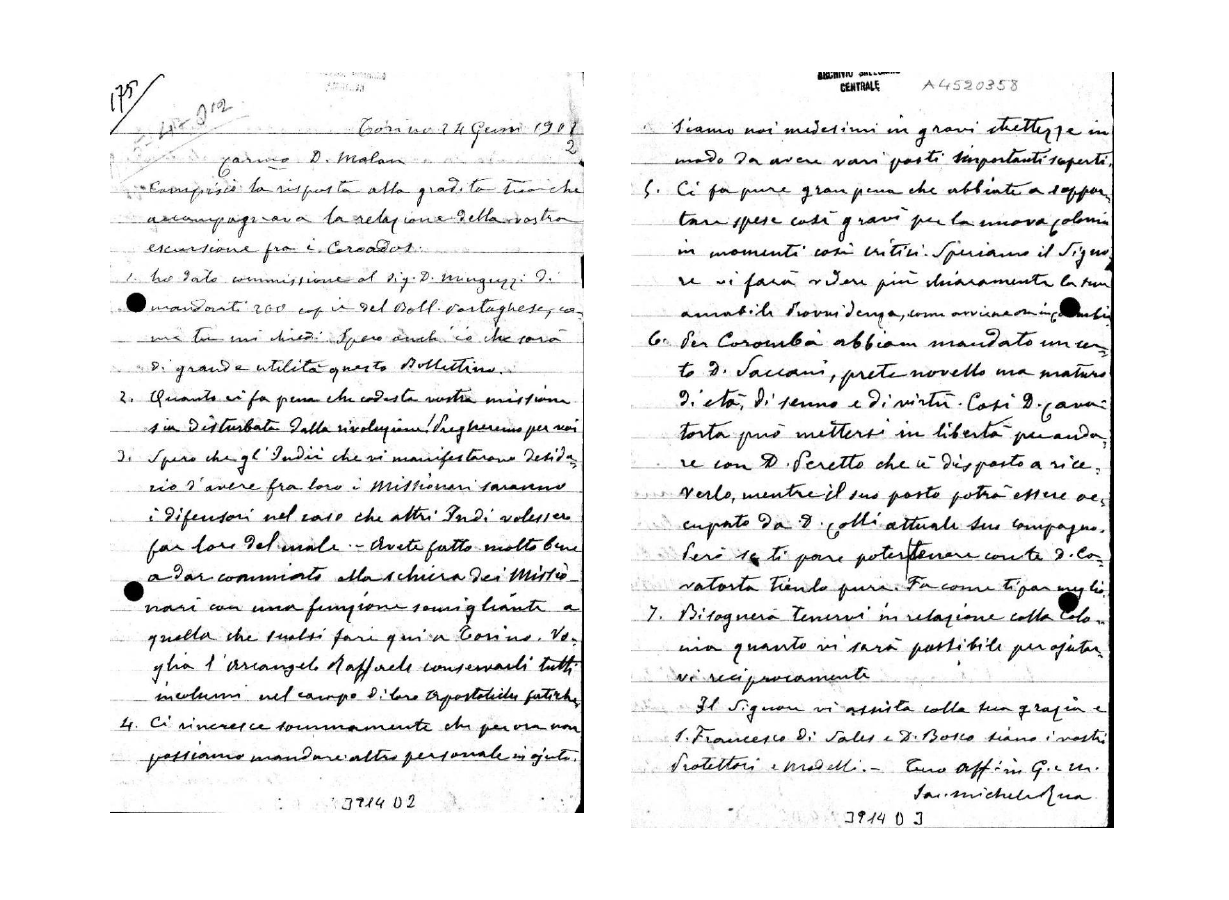 175
Torino 24 Genn 1902
2
Carmo D. Malan
Compisco la risposta alla gradita tua che
accompagnava la relazione della vostra
escursione fra i Coroados.
1. ho dato commissione al Sig. D. Minguzzi di
mandarti 200 copie del Boll. Portoghese, co-
me tu mi chiedi. Spero anch'io che sarà
di grande utilità questo Bollettino.
2. Quanto ci fa pena che codesta vostra missione
sia disturbata dalla rivoluzione! Pregheremo per voi
3. Spero che gl'Indii che vi manifestarono deside-
rio d'avere fra loro i Missionari saranno
i difensori nel caso che altri Indi volessero
far loro del male - Avete fatto molto bene
a dar commiato alla schiera dei Missio-
nari con una funzione somigliante a
quella che suolsi fare qui a Torino. Vo-
glia l'Arcangelo Raffaele conservarli tutti
incolumi nel campo di loro apostoliche fatiche.
4. Ci rincresce sommamente che per ora non
possiamo mandare altro personale in ajuto.
391402
ARCHIVIO SALESIANO
CENTRALE
A4520358
Siamo noi medesimi in gravi strettezze in
modo da avere vari posti importanti scoperti.
5. Ci fa pure gran pena che abbiate a soppor-
tare spese così gravi per la nuova colonia
in momenti così critici. Speriamo il Signo-
re vi farà vedere più chiaramente la sua
amabile Provvidenza, come avviene
6. Per Corombà abbiam mandato un cer-
to D. Saccani, prete novello ma maturo
di età, di senno e di virtù. Così D. Cava-
torta può mettersi in libertà per anda-
re con D. Peretto che è disposto a rice-
verlo, mentre il suo posto potrà essere oc-
cupato da D. Colli attuale suo compagno.
Però se ti pare poter tenere con te D. Ca-
vatorta tienlo pure. Fa come ti par meglio
7. Bisognerà tenervi in relazione colla Colo-
nia quanto vi sarà possibile per ajutar-
vi reciprocamente
Il Signore vi assista colla sua grazia e
S. Francesco di Sales e D. Bosco siano i vostri
Protettori e Modelli. - Tuo aff. in G. e M.
Sac. Michele Rua
391403